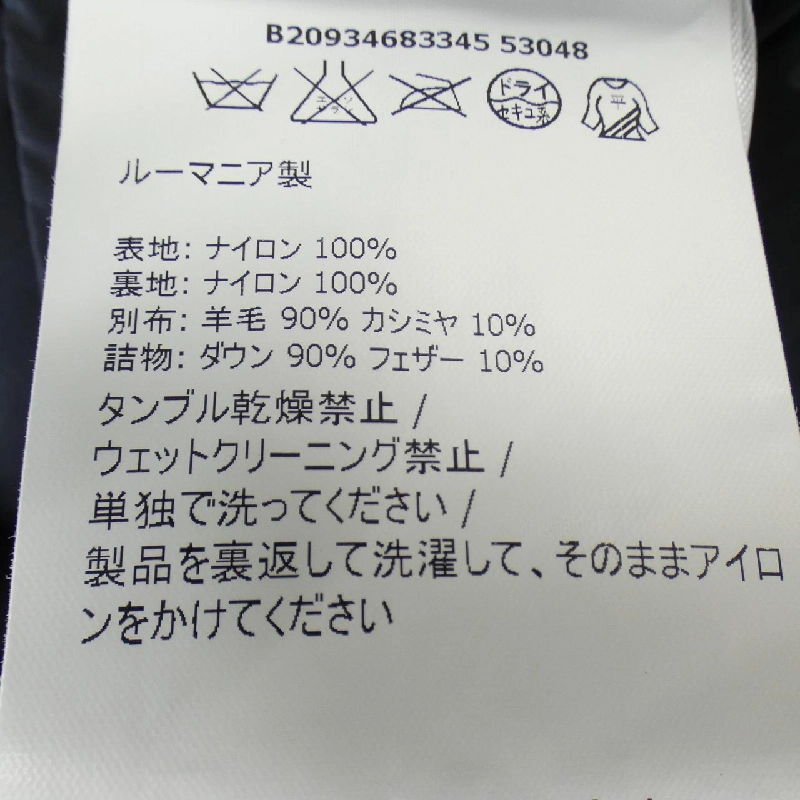 B20934683345 53048
エンソ
サラシ
ドライ
セキユ系
平
ルーマニア製
表地: ナイロン 100%
裏地: ナイロン 100%
別布: 羊毛 90% カシミヤ 10%
詰物: ダウン 90% フェザー 10%
タンブル乾燥禁止 /
ウェットクリーニング禁止 /
単独で洗ってください /
製品を裏返して洗濯して、そのままアイロ
ンをかけてください